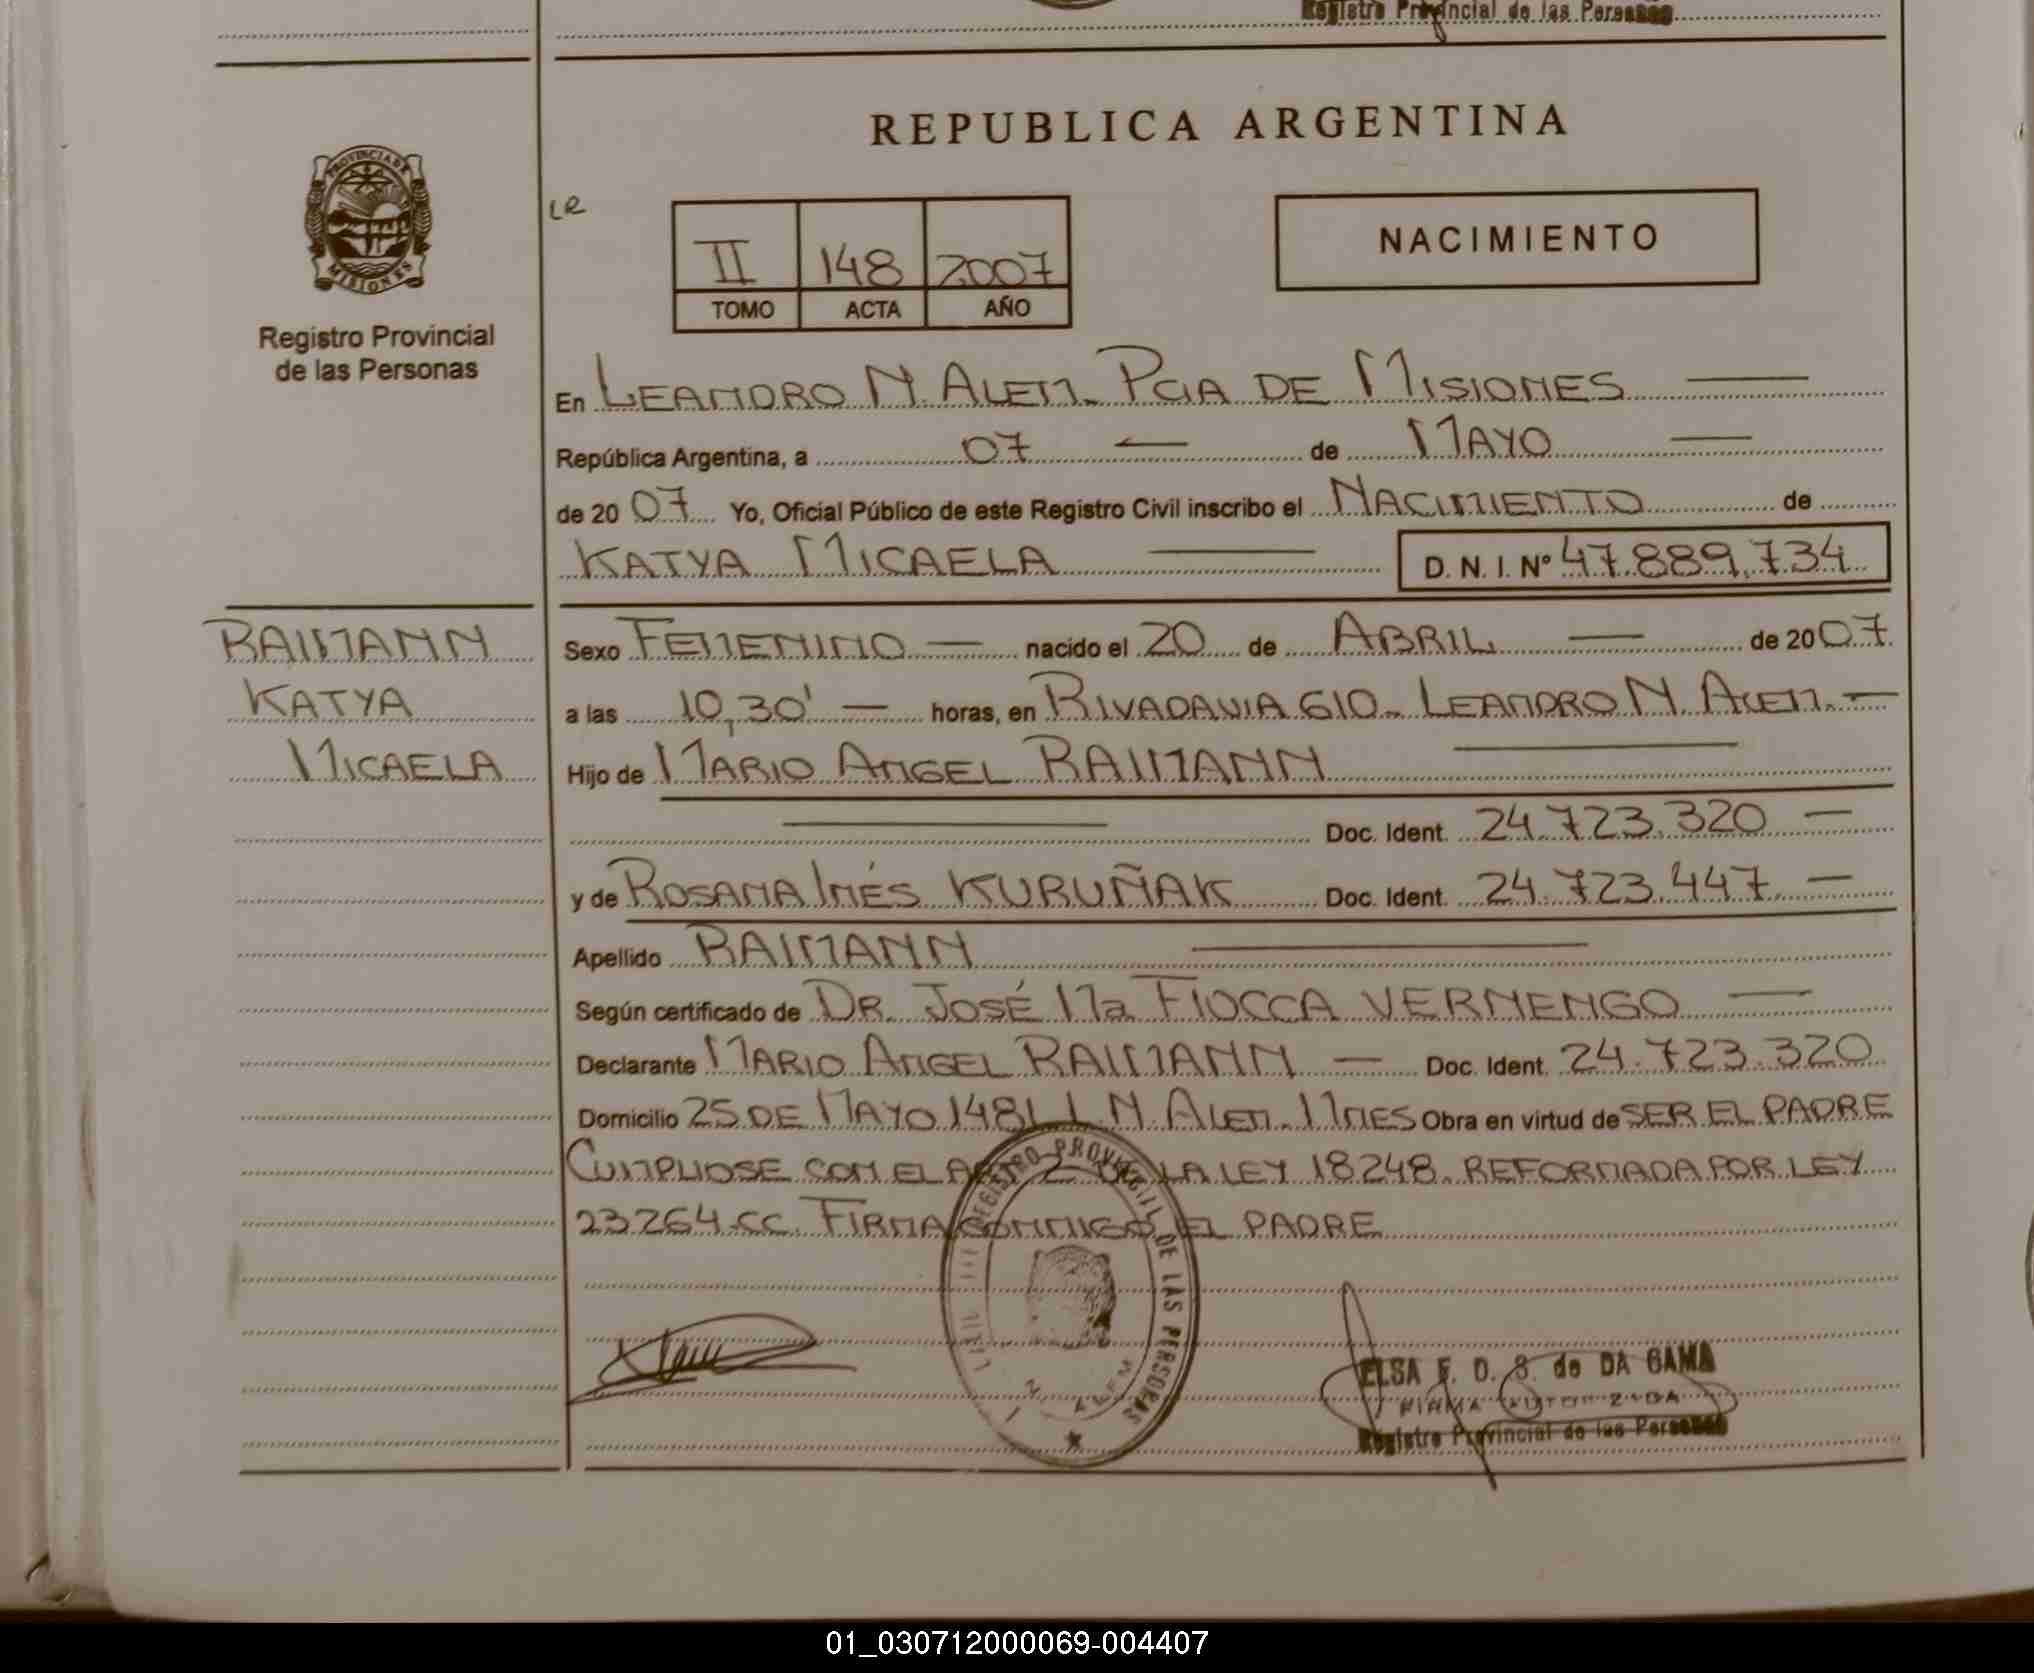 Registro Provincial de las Personas
REPUBLICA ARGENTINA
PROVINCIA DE
MISIONES
Registro Provincial
de las Personas
LR
II 148 2007
TOMO ACTA AÑO
NACIMIENTO
En LEANDRO N. ALEM. PCIA DE MISIONES
República Argentina, a 07 de MAYO
de 2007 Yo, Oficial Público de este Registro Civil inscribo el NACIMIENTO de
KATYA MICAELA D. N. I. Nº 47.889.734
RAIMANN
KATYA
MICAELA
Sexo FEMENINO nacido el 20 de ABRIL de 2007
a las 10,30' horas, en RIVADAVIA 610. LEANDRO N. ALEM.
Hijo de MARIO ANGEL RAIMANN
Doc. Ident. 24.723.320
y de ROSANA INÉS KURUÑAK Doc. Ident. 24.723.447
Apellido RAIMANN
Según certificado de DR. JOSÉ Ma FIOCCA VERNENGO
Declarante MARIO ANGEL RAIMANN Doc. Ident. 24.723.320
Domicilio 25 DE MAYO 1481 L.N. ALEM. MNES Obra en virtud de SER EL PADRE
CUMPLIOSE CON EL ART 2 LA LEY 18248. REFORMADA POR LEY
23264.CC. FIRMA CONMIGO EL PADRE
REGISTRO PROVINCIAL DE LAS PERSONAS
N. ALEM
ELSA E. D. S. de DA GAMA
FIRMA AUTORIZADA
Registro Provincial de las Personas
01_030712000069-004407